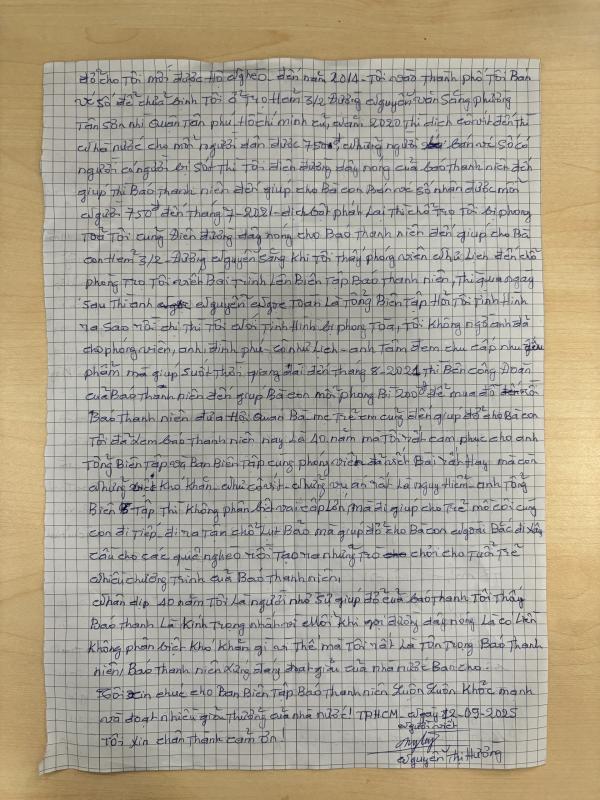 đỡ cho Tôi mới được Hộ nghèo - đến năm 2014 - Tôi vào Thành phố Tôi Bán
vé số để chữa bịnh Tôi ở Trọ Hẻm 3/2 Đường nguyễn văn Sang phường
Tân Sơn nhì Quận Tân phú Hồ chí minh cũ, năm 2020 Thì dịch covit đến thì
nhà nước cho mỗi người dân được 750đ, những người bán vé Số có
người có người bị Sót thì Tôi điện đường dây nóng của báo thanh niên đến
giúp thì Báo thanh niên đến giúp cho Bà con Bán vé số nhận được mỗi
người 750đ đến tháng 7-2021 - dịch bột phát lại thì chỗ Trọ Tôi bị phong
Toả Tôi cũng Điện đường dây nóng cho Báo thanh niên đến giúp cho Bà
con Hẻm 3/2 - Đường nguyễn Sang khi Tôi thấy phóng viên như Lịch đến chỗ
phòng Trọ Tôi viết Bài Trình Lên Biên Tập Báo thanh niên, Thì qua ngày
Sau thì anh nguyễn ngọc Toàn Là Tổng Biên Tập Hỏi Tôi Tình Hình
ra Sao rồi chị thì Tôi nói Tình Hình bị phong Toả, Tôi không ngờ anh đã
cho phóng viên, anh, đình phú - cô như Lịch - anh Tâm đem chu cấp nhu yếu
phẩm mà giúp Suốt thời giang dài đến tháng 8-2021 thì Bên công Đoàn
của Báo thanh niên đến giúp Bà con mỗi phòng Bì 200đ để mua đồ
Báo thanh niên đưa Hội Quán Bà mẹ Trẻ em cũng đến giúp đỡ cho Bà con
Tôi đã xem báo thanh niên nay Là 40 năm mà Tôi rất cảm phục cho anh
Tổng Biên Tập và Ban Biên Tập cùng phóng viên đã viết Bài rất Hay mà còn
những Khó Khăn - như covit - những vụ án rất Là nguy Hiểm anh Tổng
Biên Tập Thì không phân biệt vai cấp Lớn, mà đi giúp cho Trẻ mồ côi cũng
còn đi Tiếp, đi ra Tận chỗ Lụt Bão mà giúp đỡ cho Bà con ngoài Bắc đi xây
cầu cho các quê nghèo rồi Tạo ra những Trò chơi cho Tuổi Trẻ
nhiều chương Trình của Báo Thanh niên,
nhân dịp 40 năm Tôi Là người nhờ Sự giúp đỡ của báo thanh Tôi Thấy
Báo thanh Là Kính Trọng nhất vì mỗi khi gọi đường dây nóng Là có Liền
Không phân biệt Khó Khăn gì vì Thế mà Tôi rất Là Tôn Trọng Báo Thanh
niên, Báo Thanh niên xứng đáng đoạt giải của nhà nước Ban cho.
Tôi xin chúc cho Ban Biên Tập Báo Thanh niên Luôn Luôn Khỏe mạnh
và đoạt nhiều giải Thưởng của nhà nước! TPHCM - ngày 12-09-2025
Tôi xin chân thành cảm ơn!
người viết
nguyễn Thị Hường